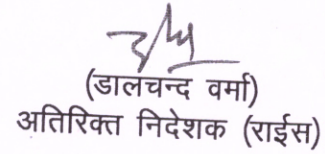 (डालचन्द वर्मा)
अतिरिक्त निदेशक (राईस)